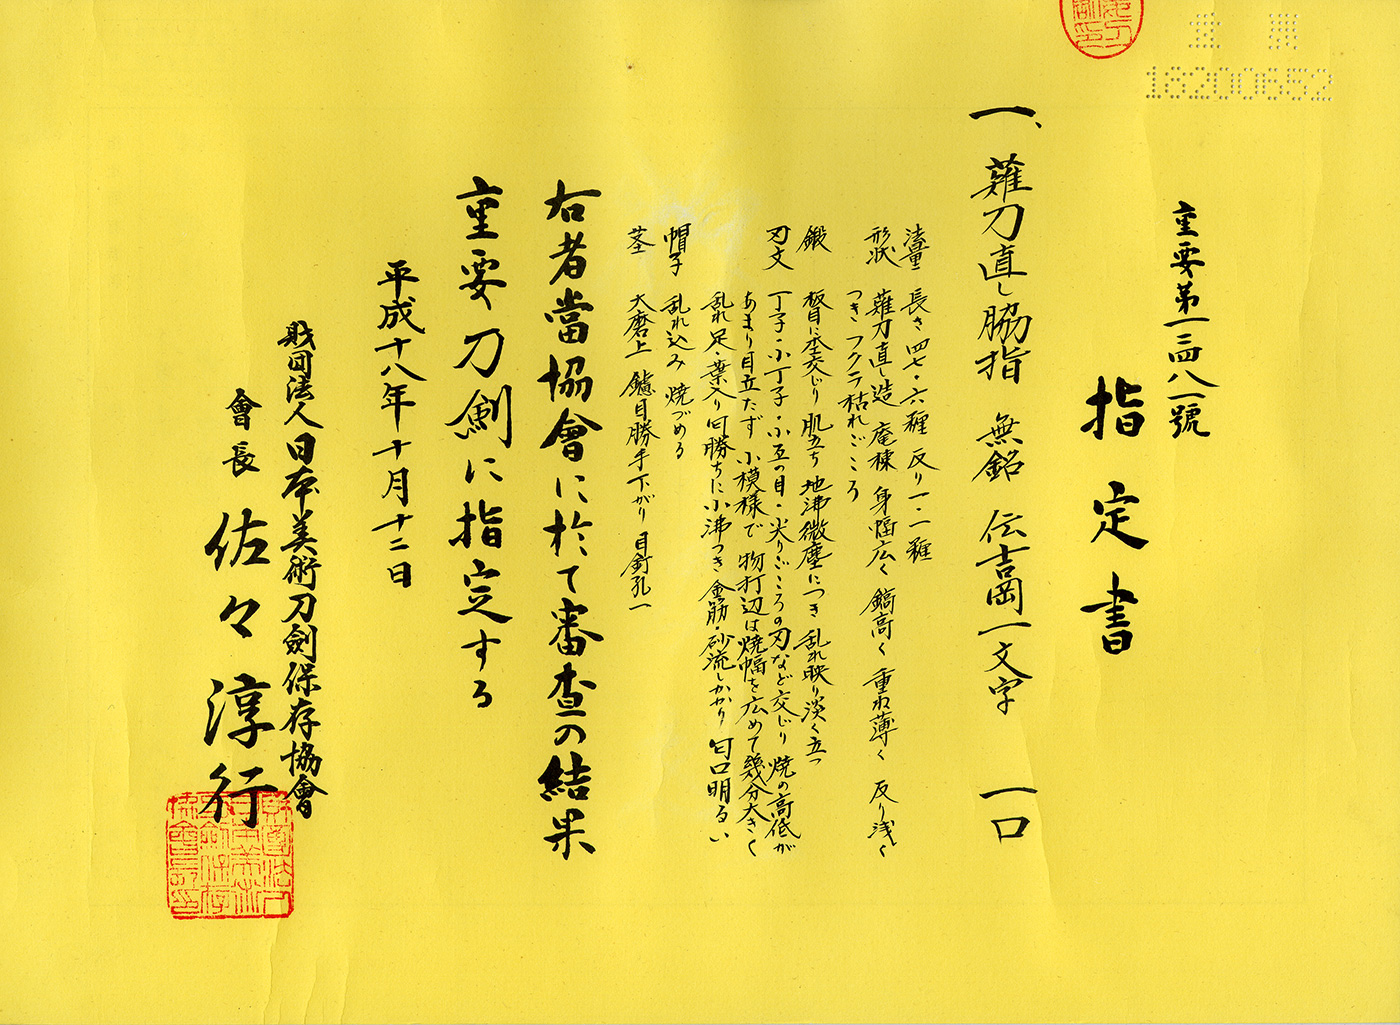 18200652
重要第一一四八一號
指定書
一、薙刀直し脇指 無銘 伝吉岡一文字 一口
法量 長さ四七・六糎 反り一・一糎
形状 薙刀直し造 庵棟 身幅広く 鎬高く 重ね薄く 反り浅く
つき フクラ枯れごころ
鍛 板目に杢交じり 肌立ち 地沸微塵につき 乱れ映り淡く立つ
刃文 丁子・小丁子・小互の目・尖りごころの刃など交じり 焼の高低が
あまり目立たず 小模様で 物打辺は焼幅を広めて幾分大きく
乱れ 足・葉入り 匂勝ちに小沸つき 金筋・砂流しかかり 匂口明るい
帽子 乱れ込み 焼づめる
茎 大磨上 鑢目勝手下がり 目釘孔一
右者當協會に於て審査の結果
重要刀剣に指定する
平成十八年十月十二日
財団法人日本美術刀劍保存協會
會長 佐々淳行